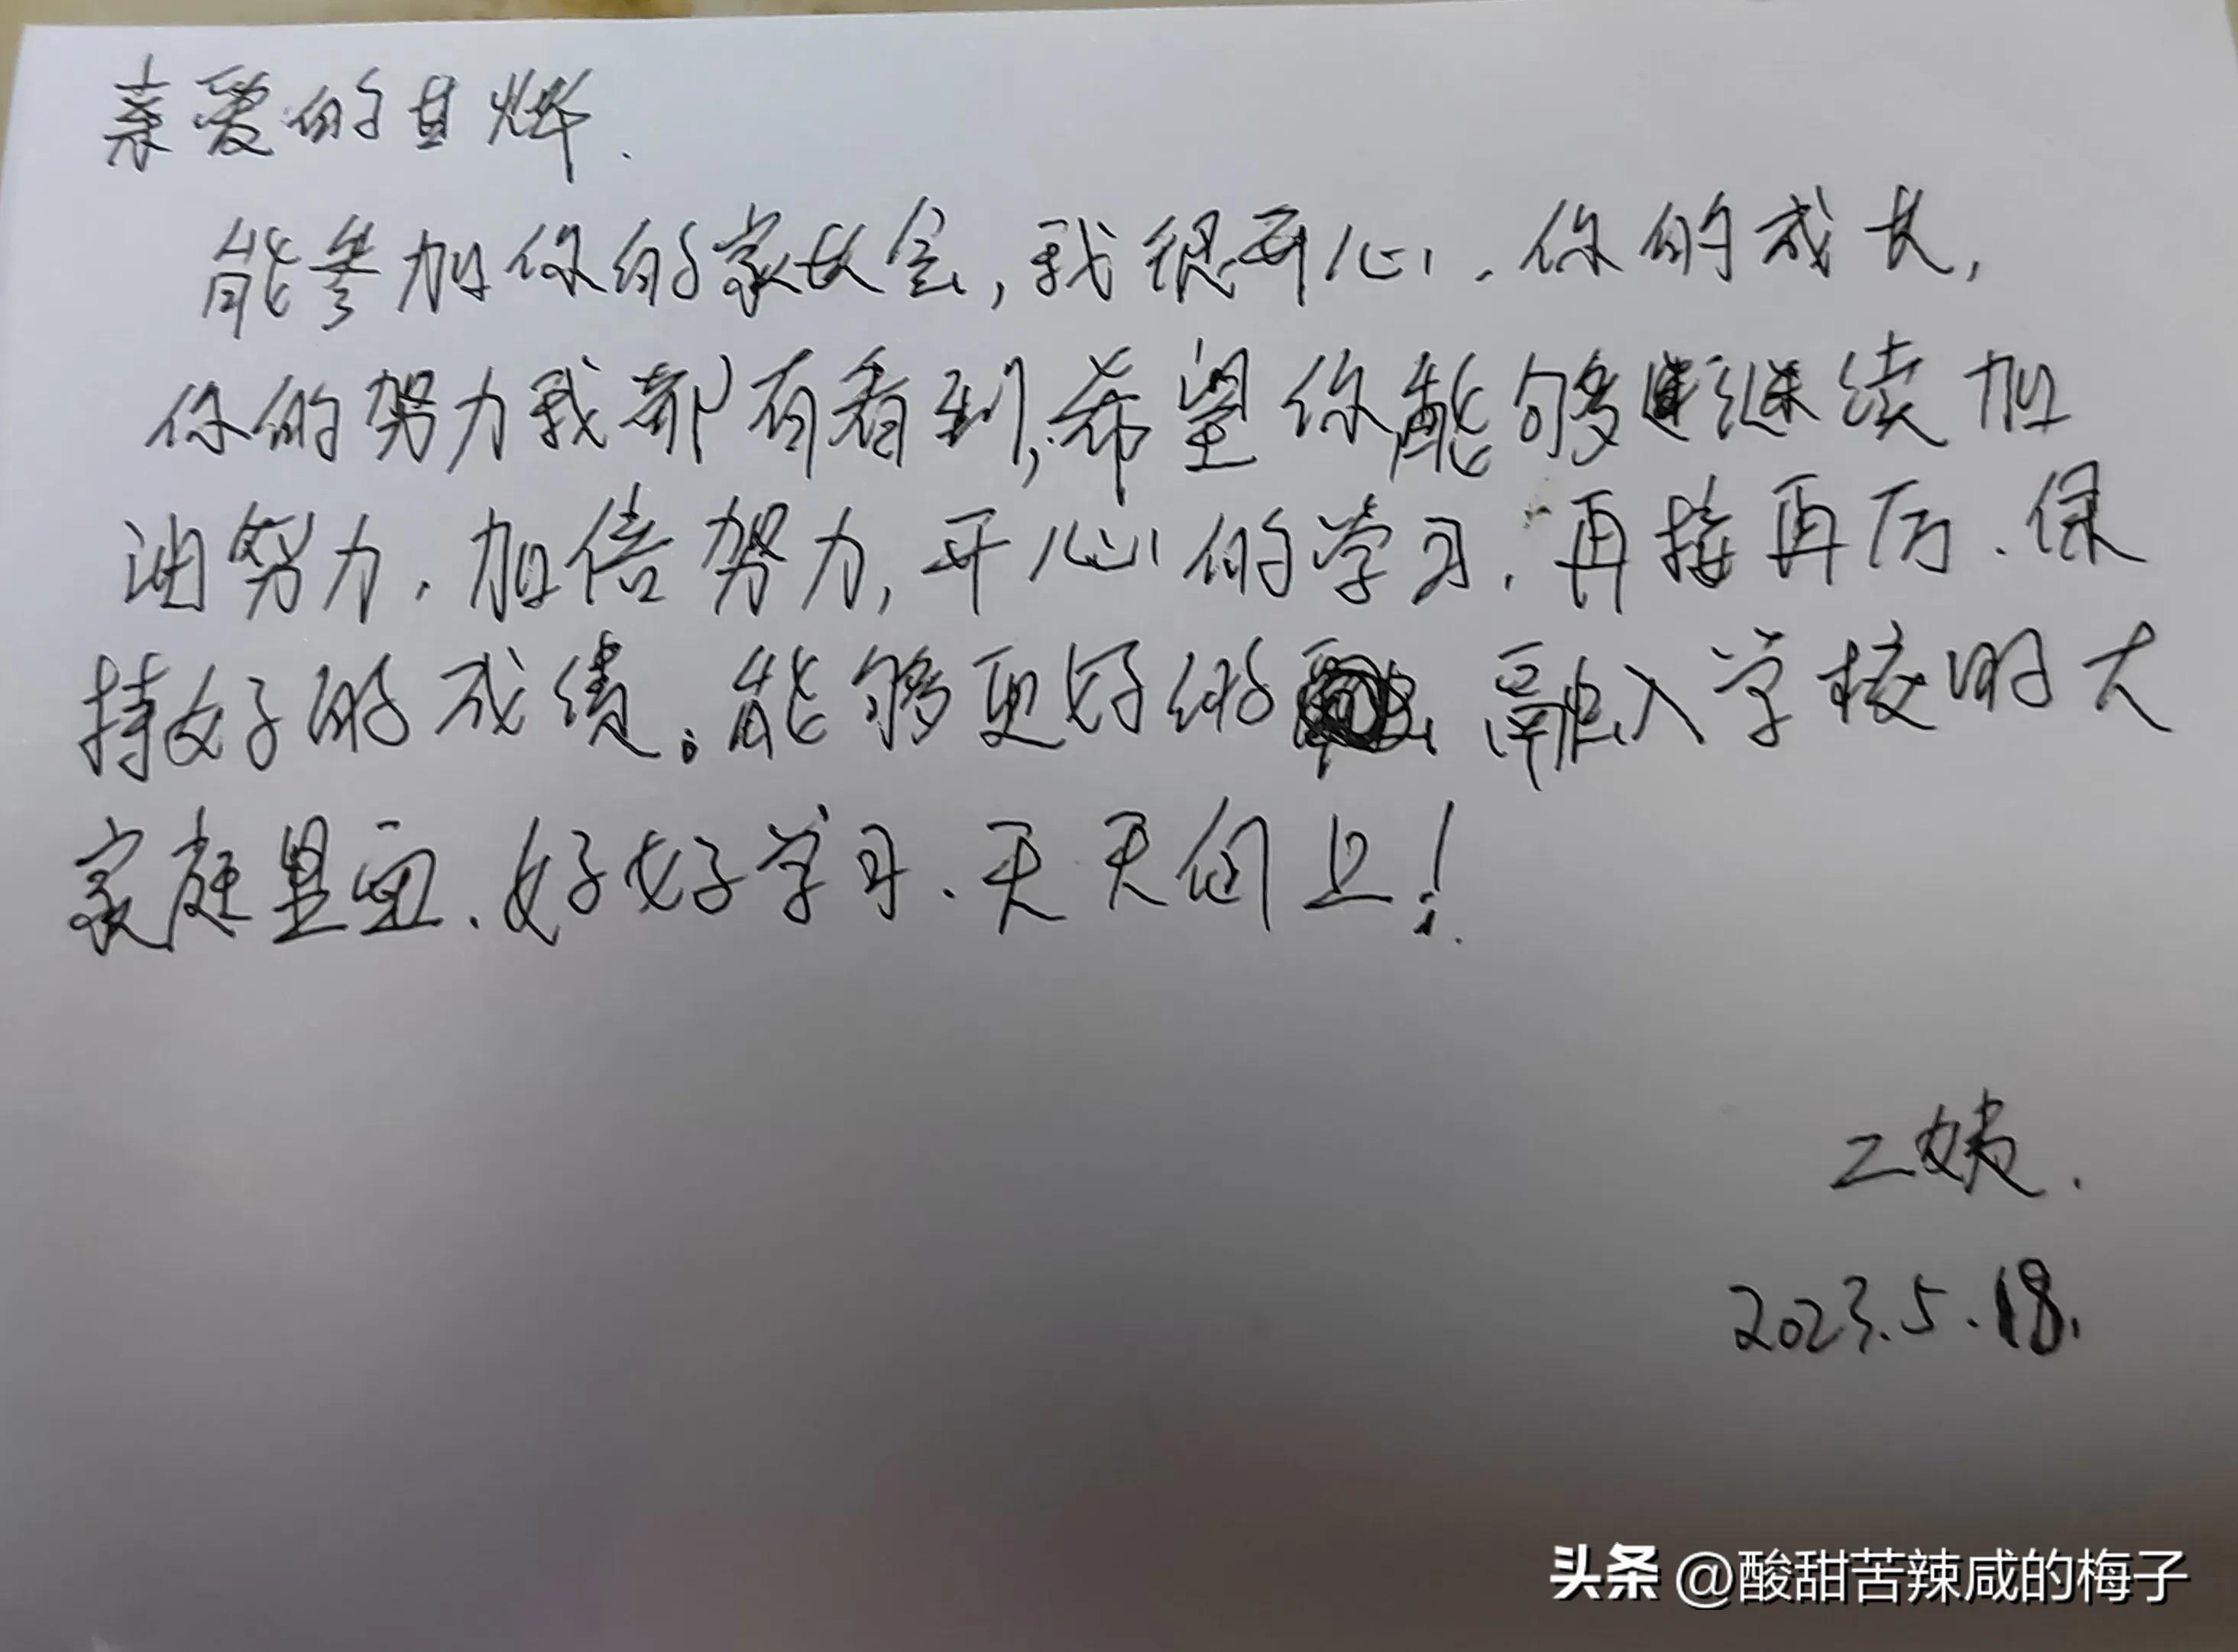 亲爱的其烨.
能参加你的家长会,我很开心.你的成长,
你的努力我都有看到,希望你能够继续加
油努力.加倍努力,开心的学习,再接再厉.保
持好的成绩。能够更好的融入学校的大
家庭里面.好好学习.天天向上!
二姨.
2023.5.18.
头条 @酸甜苦辣咸的梅子